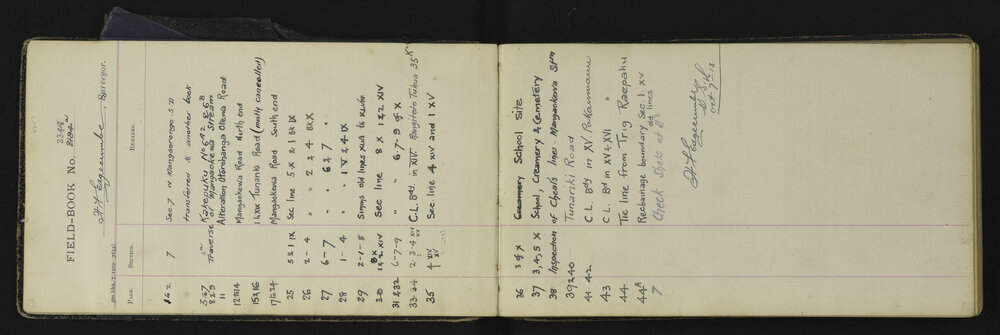 FIELD-BOOK No. 2349
H. F. Edgecumbe, Surveyor.
[10 bks./7/1909—7651
PAGE. SECTION. REMARKS.
1 & 2 7 Sec 7 N Mangaorongo S.D
transferred to another book
5 6 7 Kakepuku No 6 A2 & 6 B
8 & 9 Traverse of Mangaokewa Stream
11 Alteration Otorohanga Otewa Road
12 & 14 Mangaokewa Road North end
15 & 16 Tunariki Road (mostly cancelled)
17 to 24 Mangaokewa Road South end
25 5 2 1 IX Sec. line 5 x 2.1 Bk IX
26 2 - 4 " " 2 & 4 Bk X
27 6 - 7 " " 6 & 7 "
28 1 - 4 " " 1 V 2 4 IX
29 2 - 1 - 8 Simms old lines
30 8 X 1 & 2 XIV Sec line 8 X 1 & 2 XIV
31 & 32 6 - 7 - 9 " " 6. 7 - 9 of X
33-34 2. 3. 4 XIV C. L. Bdy. in XIV. Rangitoto Tuhua 35
35 4 XIV XV Sec. line 4 XIV and 1 XV
36 3 of X Creamery School Site
37 3, 4, 5 X School, Creamery & Cemetery
38 Inspection of Cheal's lines - Mangaokewa Stm
39 & 40 Tunariki Road
41 42 C. L. Bdy in XV Pukemanu
43 C. L. Bd in XV & XVI "
44 Tie line from Trig Raepahu
44A Rechainage boundary Sec. 1. XV
old lines
7 Check Shots at
H F Edgecumbe
D. S.
Oct 7th 13